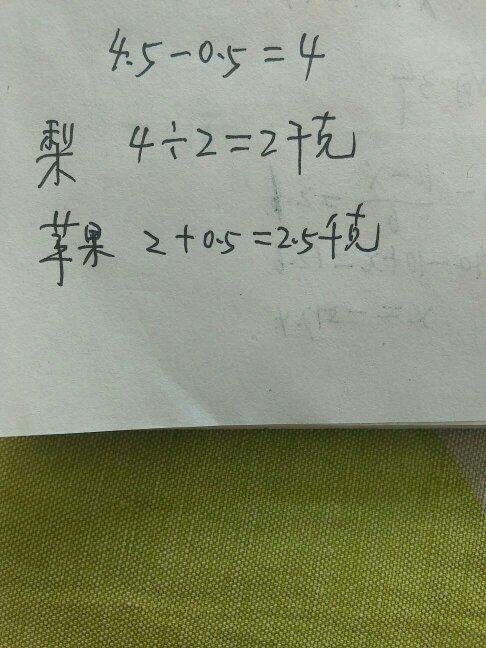 4.5-0.5=4
梨 4÷2=2千克
苹果 2+0.5=2.5千克